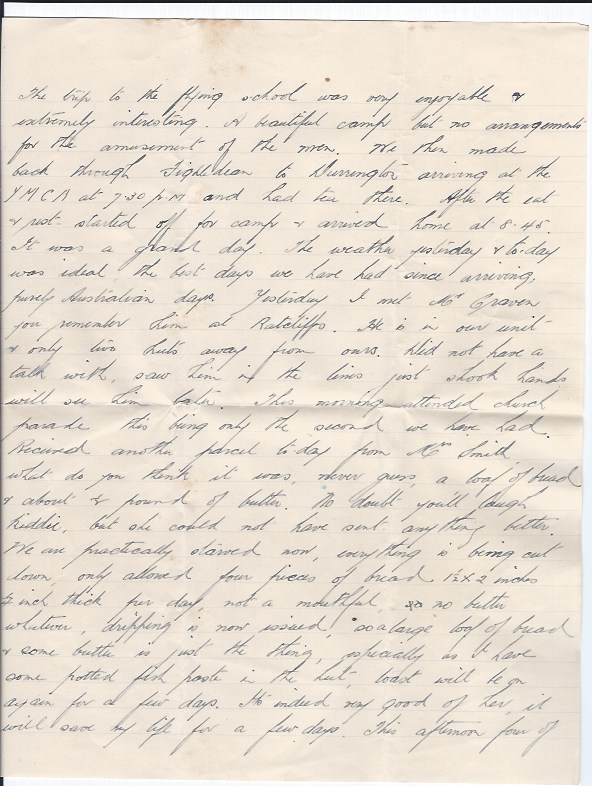 The trip to the flying school was very enjoyable &
extremely interesting. A beautiful camp but no arrangements
for the amusement of the men. We then made
back through Figheldean to Durrington arriving at the
Y M C A at 7-30 p.m and had tea there. After the eat
& rest- started off for camp & arrived home at 8-45.
It was a grand day. The weather yesterday & to-day
was ideal, the best days we have had since arriving,
purely Australian days. Yesterday I met Mr Craven
you remember him at Ratcliffs. He is in our unit-
& only two huts away from ours. Did not have a
talk with, saw him in the lines just shook hands
will see him later. This morning attended church
parade this being only the second we have had.
Recieved another parcel to-day from Mrs Smith
what do you think it was, never guess, a loaf of bread
& about ½ pound of butter. No doubt you'll laugh
Kiddie, but she could not have sent anything better.
We are practically starved now, everything is being cut
down, only allowed four pieces of bread 1½ X 2 inches
½ inch thick per day, not a mouthful, no butter
whatever, dripping is now issued, so a large loaf of bread
& some butter is just the thing, especially as I have
some potted fish paste in the hut, toast will be on
again for a few days. Its indeed very good of her, it
will save my life for a few days. This afternoon four of